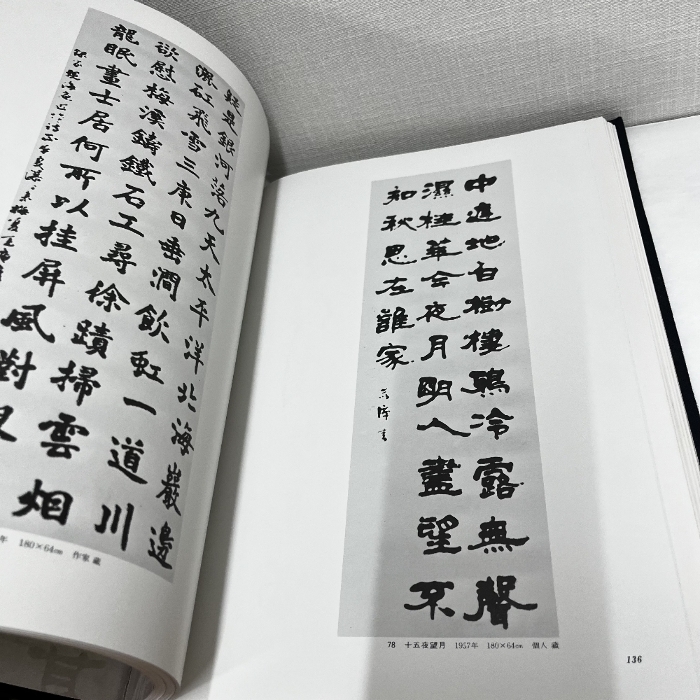 疑是銀河落九天太平洋北海巖邊
矼飛雪三庚日垂澗飲虹一道川
欲慰梅鑄鐵石工尋徐蹟掃雲烟
龍眠畫士居何所以挂屏風對
年 180×64cm 作家 蔵
中庭地白樹棲鴉冷露無聲
濕桂華今夜月明人盡望不
知秋思在誰家
78 十五夜望月 1957年 180×64cm 個人 蔵
136